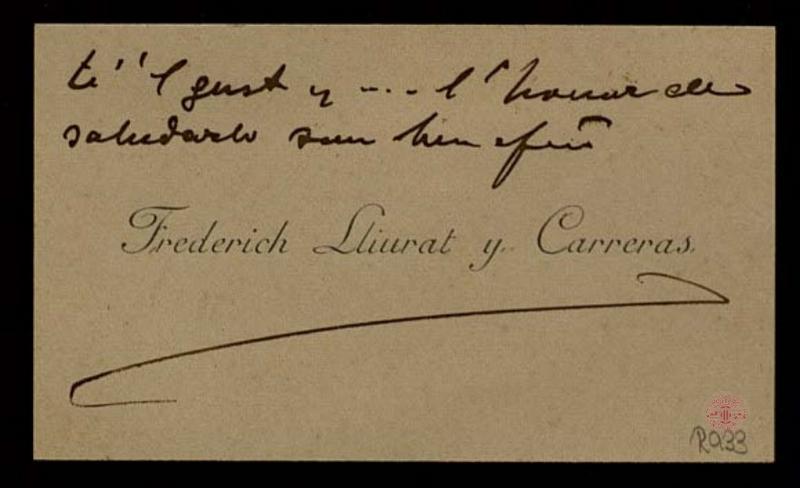 té 'l gust y ... l'honor de
saludarlo son ben
Frederich Lliurat y Carreras.
R933